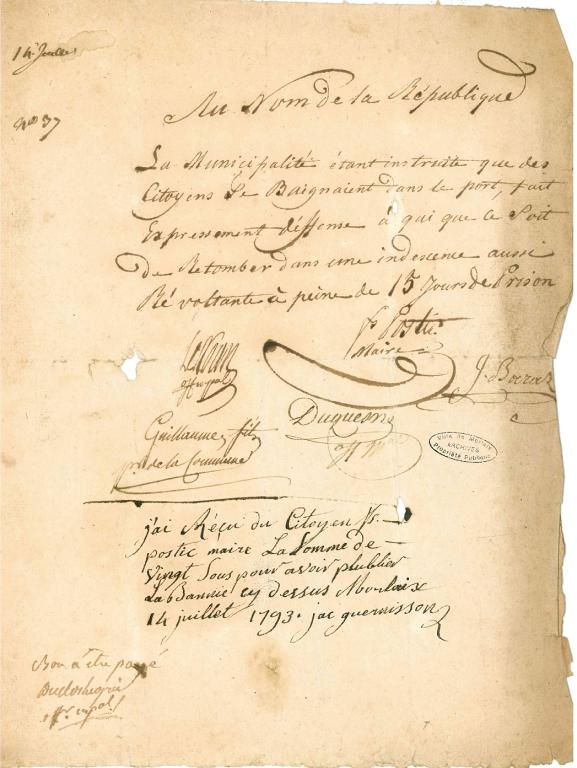 14 Juillet
No 37
Au Nom de la République
La Municipalité étant instruite que des
Citoyens Se Baignaient dans le port, fait
Expressement déffense à qui que ce Soit
De Retomber dans une indescence aussi
Révoltante à peine de 15 Jours de Prison
Maire
off mpal
Duquesne
off mpal
Guillaume fils
pr de la Commune
Ville de Morlaix
ARCHIVES
Propriété Publique
j'ai Réçu du Citoyen
postic maire La Somme de
Vingt Sous pour avoir plublier
La Bannie cy dessus Morlaix
14 juillet 1793. jac guernisson
Bon à être payé
offr mpal